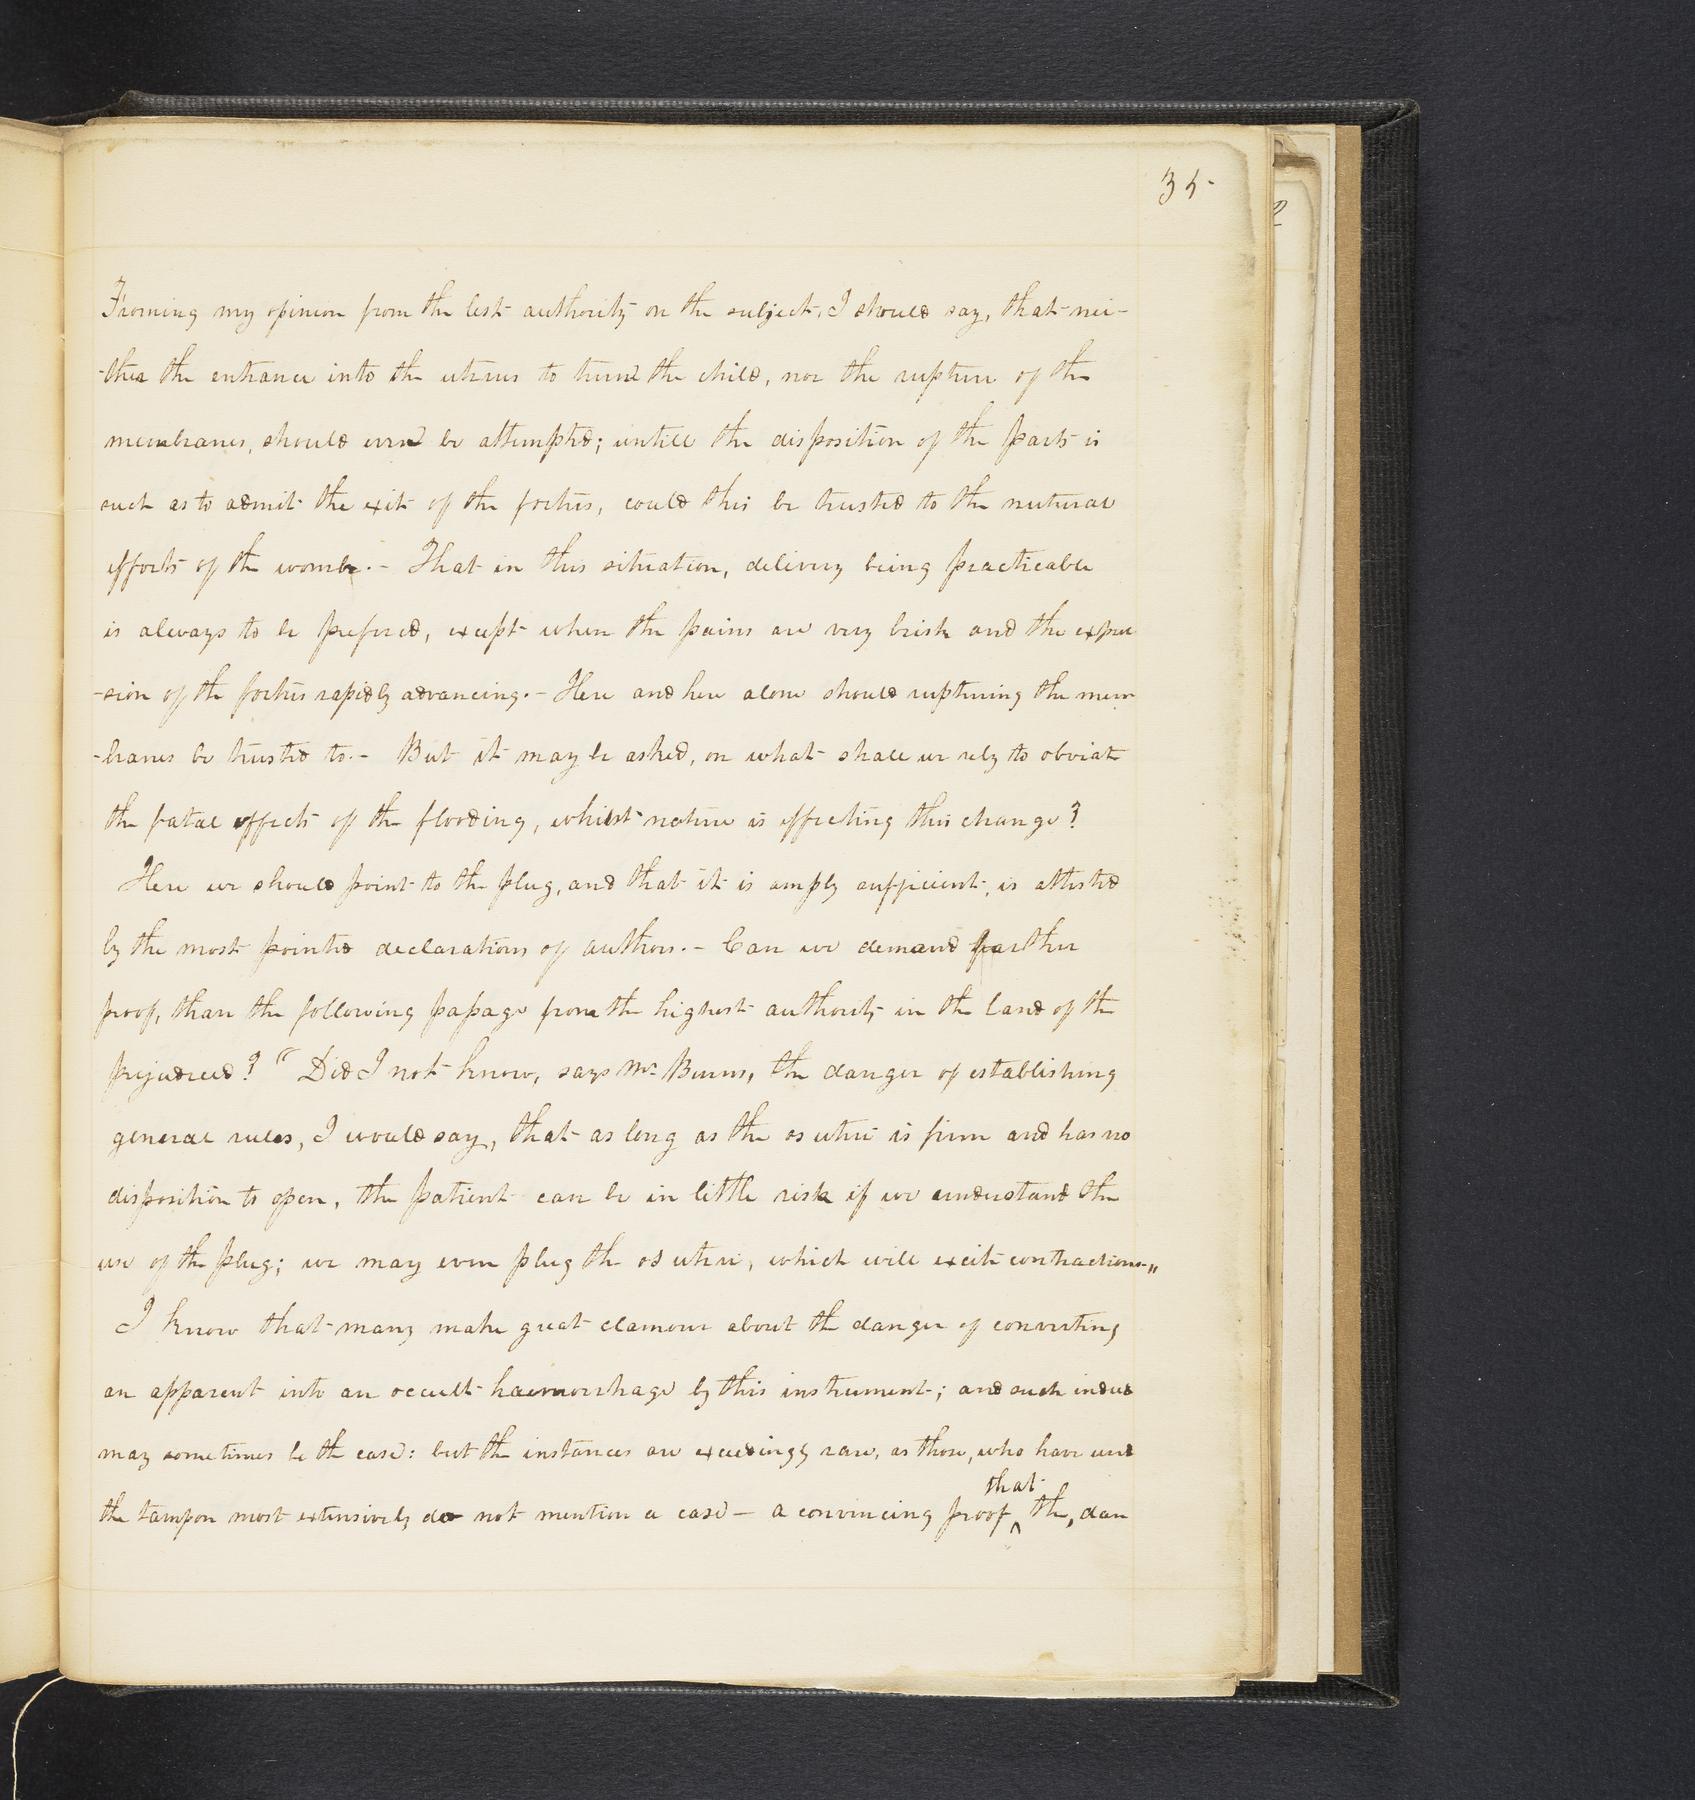 35-
Froming my opinion from the best authority on the subject, I should say, that nei-
-ther the entrance into the uterus to turn the child, nor the rupture of the
membranes, should even be attempted; untill the disposition of the parts is
such as to admit the exit of the foetus, could this be trusted to the natural
efforts of the womb. - That in this situation, delivery being practicable
is always to be prefered, except when the pains are very brisk and the expul
-sion of the foetus rapidly advancing. - Here and here alone should rupturing the mem
-branes be trusted to. - But it may be asked, on what shall we rely to obviate
the fatal effects of the flooding, whilst nature is effecting this change?
Here we should point to the plug, and that it is amply sufficient, is attested
by the most pointed declarations of authors. - Can we demand farther
proof, than the following passage from the highest authority in the land of the
prejudiced? "Did I not know, says Mr Burns, the danger of establishing
general rules, I would say, that as long as the os uteri is firm and has no
disposition to open, the patient can be in little risk if we understand the
use of the plug; we may even plug the os uteri, which will excite contractions."
I know that many make great clamour about the danger of converting
an apparent into an occult haemorrhage by this instrument; and such indeed
may sometimes be the case: but the instances are exceedingly rare, as those, who have used
that
the tampon most extensively do not mention a case - a convincing proof ^ the, dan